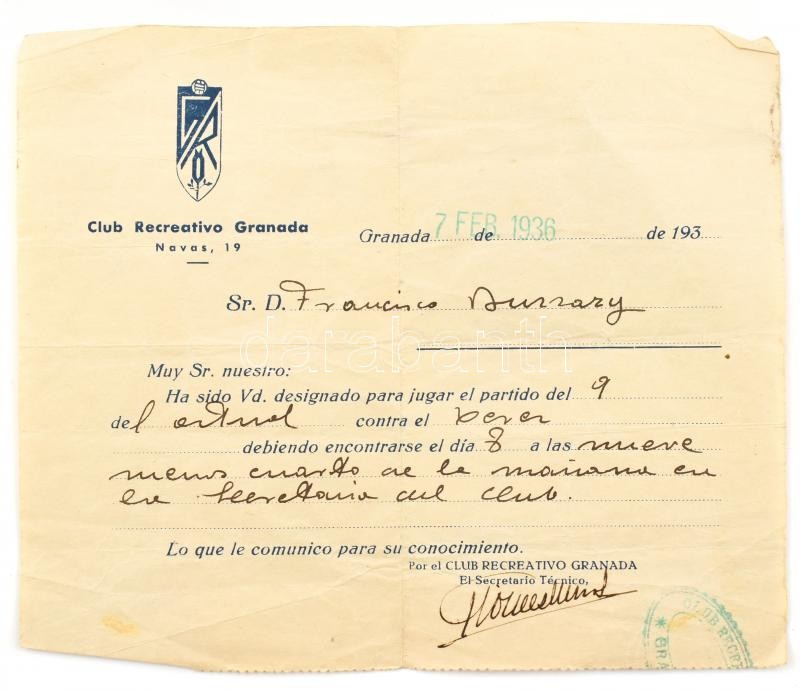 Club Recreativo Granada
Navas, 19
Granada 7 FEB. 1936 de de 193
Sr. D. Francisco
Muy Sr. nuestro:
Ha sido Vd. designado para jugar el partido del 9
del actual contra el Xerez
debiendo encontrarse el día 8 a las nueve
menos cuarto de la mañana en
la Secretaria del Club.
Lo que le comunico para su conocimiento.
Por el CLUB RECREATIVO GRANADA
El Secretario Técnico,
CLUB RECRE
* GRA
darabanth